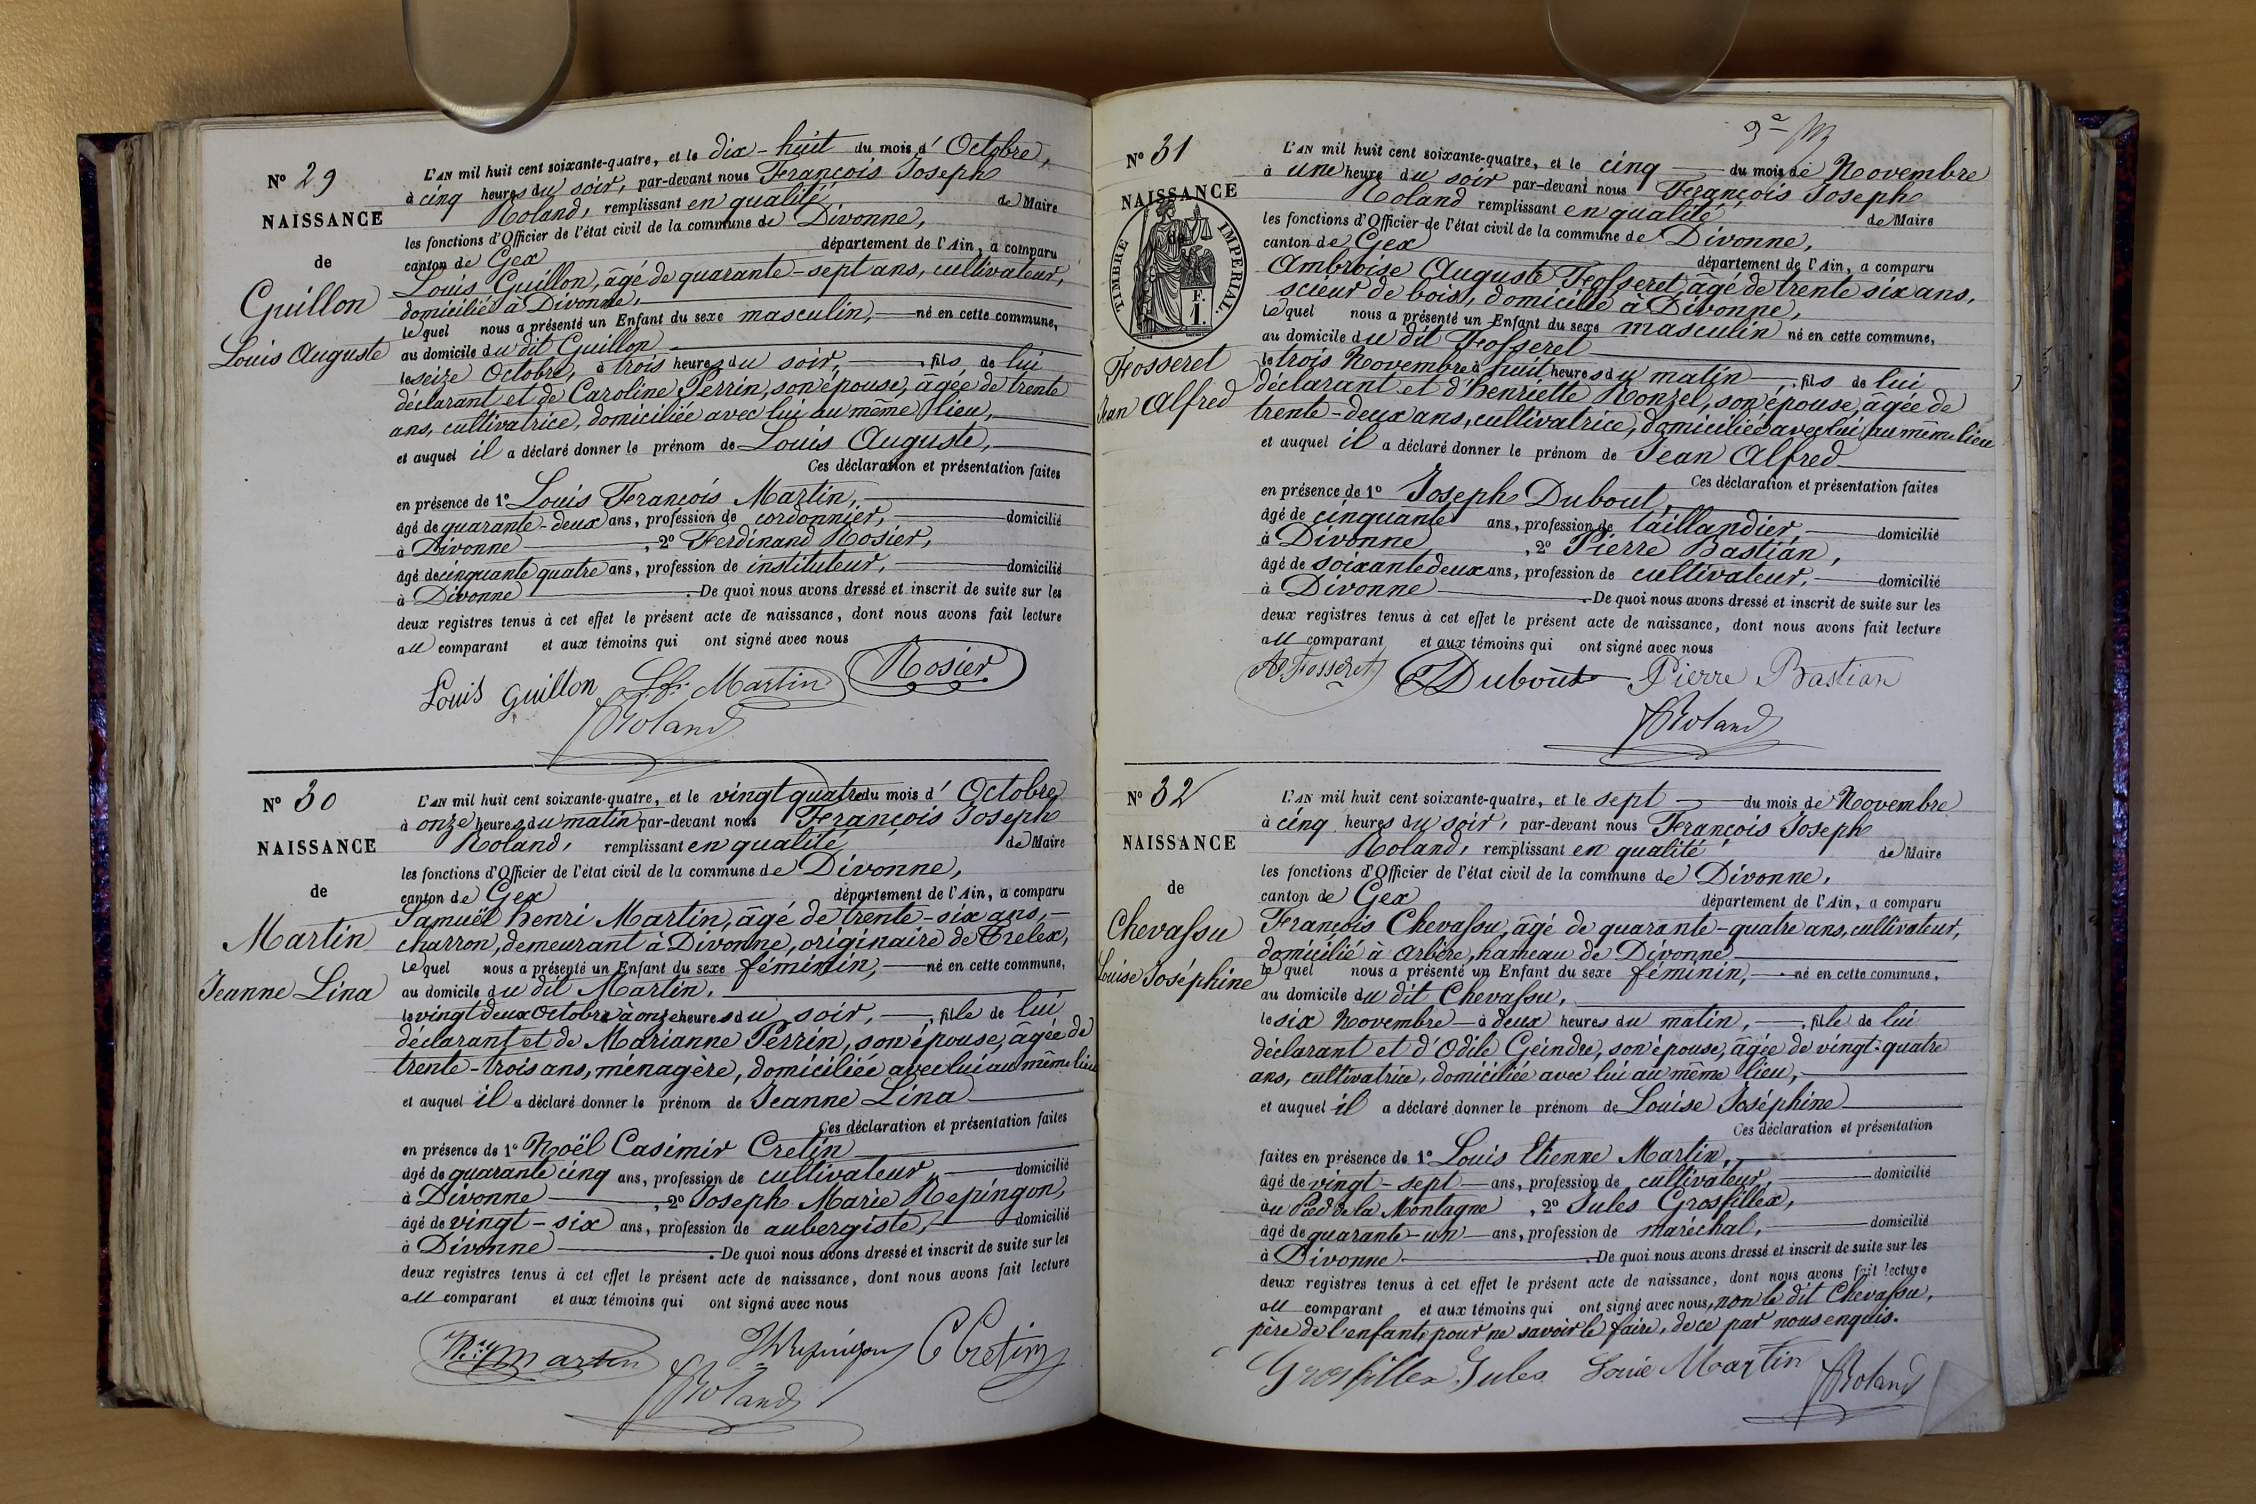 N° 29
NAISSANCE
de
Guillon
Louis Auguste
L'AN mil huit cent soixante-quatre, et le dix-huit du mois d'Octobre,
à cinq heures du soir, par-devant nous François Joseph
Roland, remplissant en qualité de Maire
les fonctions d'Officier de l'état civil de la commune de Divonne,
canton de Gex département de l'Ain, a comparu
Louis Guillon, âgé de quarante-sept ans, cultivateur,
domicilié à Divonne,
lequel nous a présenté un Enfant du sexe masculin, né en cette commune,
au domicile du dit Guillon
le seize Octobre, à trois heures du soir, fils de lui
déclarant et de Caroline Perrin, son épouse, âgée de trente
ans, cultivatrice, domiciliée avec lui au même lieu,
et auquel il a déclaré donner le prénom de Louis Auguste,
Ces déclaration et présentation faites
en présence de 1° Louis François Martin,
âgé de quarante-deux ans, profession de cordonnier, domicilié
à Divonne, 2° Ferdinand Rosier,
âgé de cinquante quatre ans, profession de instituteur, domicilié
à Divonne. De quoi nous avons dressé et inscrit de suite sur les
deux registres tenus à cet effet le présent acte de naissance, dont nous avons fait lecture
au comparant et aux témoins qui ont signé avec nous
Louis Guillon Martin Rosier
Roland
N° 30
NAISSANCE
de
Martin
Jeanne Lina
L'AN mil huit cent soixante-quatre, et le vingt quatre du mois d'Octobre
à onze heures du matin par-devant nous François Joseph
Roland, remplissant en qualité de Maire
les fonctions d'Officier de l'état civil de la commune de Divonne,
canton de Gex département de l'Ain, a comparu
Samuël henri Martin, âgé de trente-six ans,
charron, demeurant à Divonne, originaire de Trelex,
lequel nous a présenté un Enfant du sexe féminin, né en cette commune,
au domicile du dit Martin,
le vingt deux Octobre à onze heures du soir, fille de lui
déclarant et de Marianne Perrin, son épouse, âgée de
trente-trois ans, ménagère, domiciliée avec lui au même lieu
et auquel il a déclaré donner le prénom de Jeanne Lina
Ces déclaration et présentation faites
en présence de 1° Noël Casimir Cretin
âgé de quarante cinq ans, profession de cultivateur, domicilié
à Divonne, 2° Joseph Marie Repingon,
âgé de vingt-six ans, profession de aubergiste, domicilié
à Divonne. De quoi nous avons dressé et inscrit de suite sur les
deux registres tenus à cet effet le présent acte de naissance, dont nous avons fait lecture
au comparant et aux témoins qui ont signé avec nous
Martin Repingon C Cretin
Roland
N° 31
NAISSANCE
TIMBRE IMPERIAL
F.
1.
Fosseret
Jean Alfred
L'AN mil huit cent soixante-quatre, et le cinq du mois de Novembre
à une heure du soir par-devant nous François Joseph
Roland remplissant en qualité de Maire
les fonctions d'Officier de l'état civil de la commune de Divonne,
canton de Gex département de l'Ain, a comparu
Ambroise Auguste Fosseret, âgé de trente six ans,
scieur de bois, domicilié à Divonne,
lequel nous a présenté un Enfant du sexe masculin né en cette commune,
au domicile du dit Fosseret
le trois Novembre à huit heures du matin, fils de lui
déclarant et d'henriette Ronzel, son épouse, âgée de
trente-deux ans, cultivatrice, domiciliée avec lui au même lieu
et auquel il a déclaré donner le prénom de Jean Alfred
Ces déclaration et présentation faites
en présence de 1° Joseph Dubout,
âgé de cinquante ans, profession de taillandier, domicilié
à Divonne, 2° Pierre Bastian,
âgé de soixante deux ans, profession de cultivateur, domicilié
à Divonne. De quoi nous avons dressé et inscrit de suite sur les
deux registres tenus à cet effet le présent acte de naissance, dont nous avons fait lecture
au comparant et aux témoins qui ont signé avec nous
Fosseret Dubout Pierre Bastian
Roland
N° 32
NAISSANCE
de
Chevassu
Louise Joséphine
L'AN mil huit cent soixante-quatre, et le sept du mois de Novembre
à cinq heures du soir, par-devant nous François Joseph
Roland, remplissant en qualité de Maire
les fonctions d'Officier de l'état civil de la commune de Divonne,
canton de Gex département de l'Ain, a comparu
François Chevassu, âgé de quarante-quatre ans, cultivateur,
domicilié à Arbère, hameau de Divonne
lequel nous a présenté un Enfant du sexe féminin, né en cette commune,
au domicile du dit Chevassu,
le six Novembre à deux heures du matin, fille de lui
déclarant et d'Odile Geindre, son épouse, âgée de vingt-quatre
ans, cultivatrice, domiciliée avec lui au même lieu,
et auquel il a déclaré donner le prénom de Louise Joséphine
Ces déclaration et présentation
faites en présence de 1° Louis Etienne Martin,
âgé de vingt-sept ans, profession de cultivateur, domicilié
au Pied de la Montagne, 2° Jules Grosfillex,
âgé de quarante-un ans, profession de maréchal, domicilié
à Divonne. De quoi nous avons dressé et inscrit de suite sur les
deux registres tenus à cet effet le présent acte de naissance, dont nous avons fait lecture
au comparant et aux témoins qui ont signé avec nous, non le dit Chevassu,
père de l'enfant, pour ne savoir le faire, de ce par nous enquis.
Grosfillex Jules Louis Martin Roland